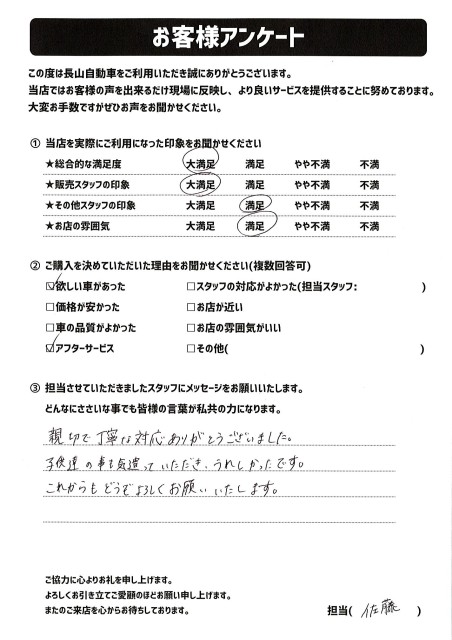 お客様アンケート
この度は長山自動車をご利用いただき誠にありがとうございます。
当店ではお客様の声を出来るだけ現場に反映し、より良いサービスを提供することに努めております。
大変お手数ですがぜひお声をお聞かせください。
① 当店を実際にご利用になった印象をお聞かせください
★総合的な満足度 大満足 満足 やや不満 不満
★販売スタッフの印象 大満足 満足 やや不満 不満
★その他スタッフの印象 大満足 満足 やや不満 不満
★お店の雰囲気 大満足 満足 やや不満 不満
② ご購入を決めていただいた理由をお聞かせください(複数回答可)
☑欲しい車があった □スタッフの対応がよかった(担当スタッフ: )
□価格が安かった □お店が近い
□車の品質がよかった □お店の雰囲気がいい
☑アフターサービス □その他( )
③ 担当させていただきましたスタッフにメッセージをお願いいたします。
どんなにささいな事でも皆様の言葉が私共の力になります。
親切で丁寧な対応ありがとうございました。
子供達の事も気遣っていただき、うれしかったです。
これからもどうぞよろしくお願いいたします。
ご協力に心よりお礼を申し上げます。
よろしくお引き立てご愛顧のほどお願い申し上げます。
またのご来店を心からお待ちしております。
担当( 佐藤 )